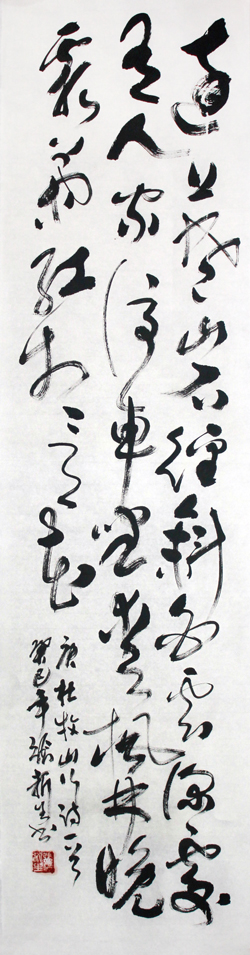 遠上寒山石徑斜白雲深處
有人家停車坐愛楓林晚
霜葉紅於二月花
唐杜牧山行詩一首
癸巳年新生书